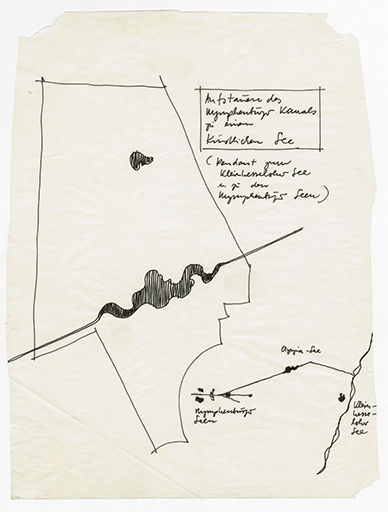 Aufstauen des
Nymphenburger Kanals
zu einem
Künstlichen See
(Pendant zum
Kleinhesseloher See
u. zu den
Nymphenburger Seen)
Olympia-See
Nymphenburger
Seen
Klein-
hesse-
loher
See